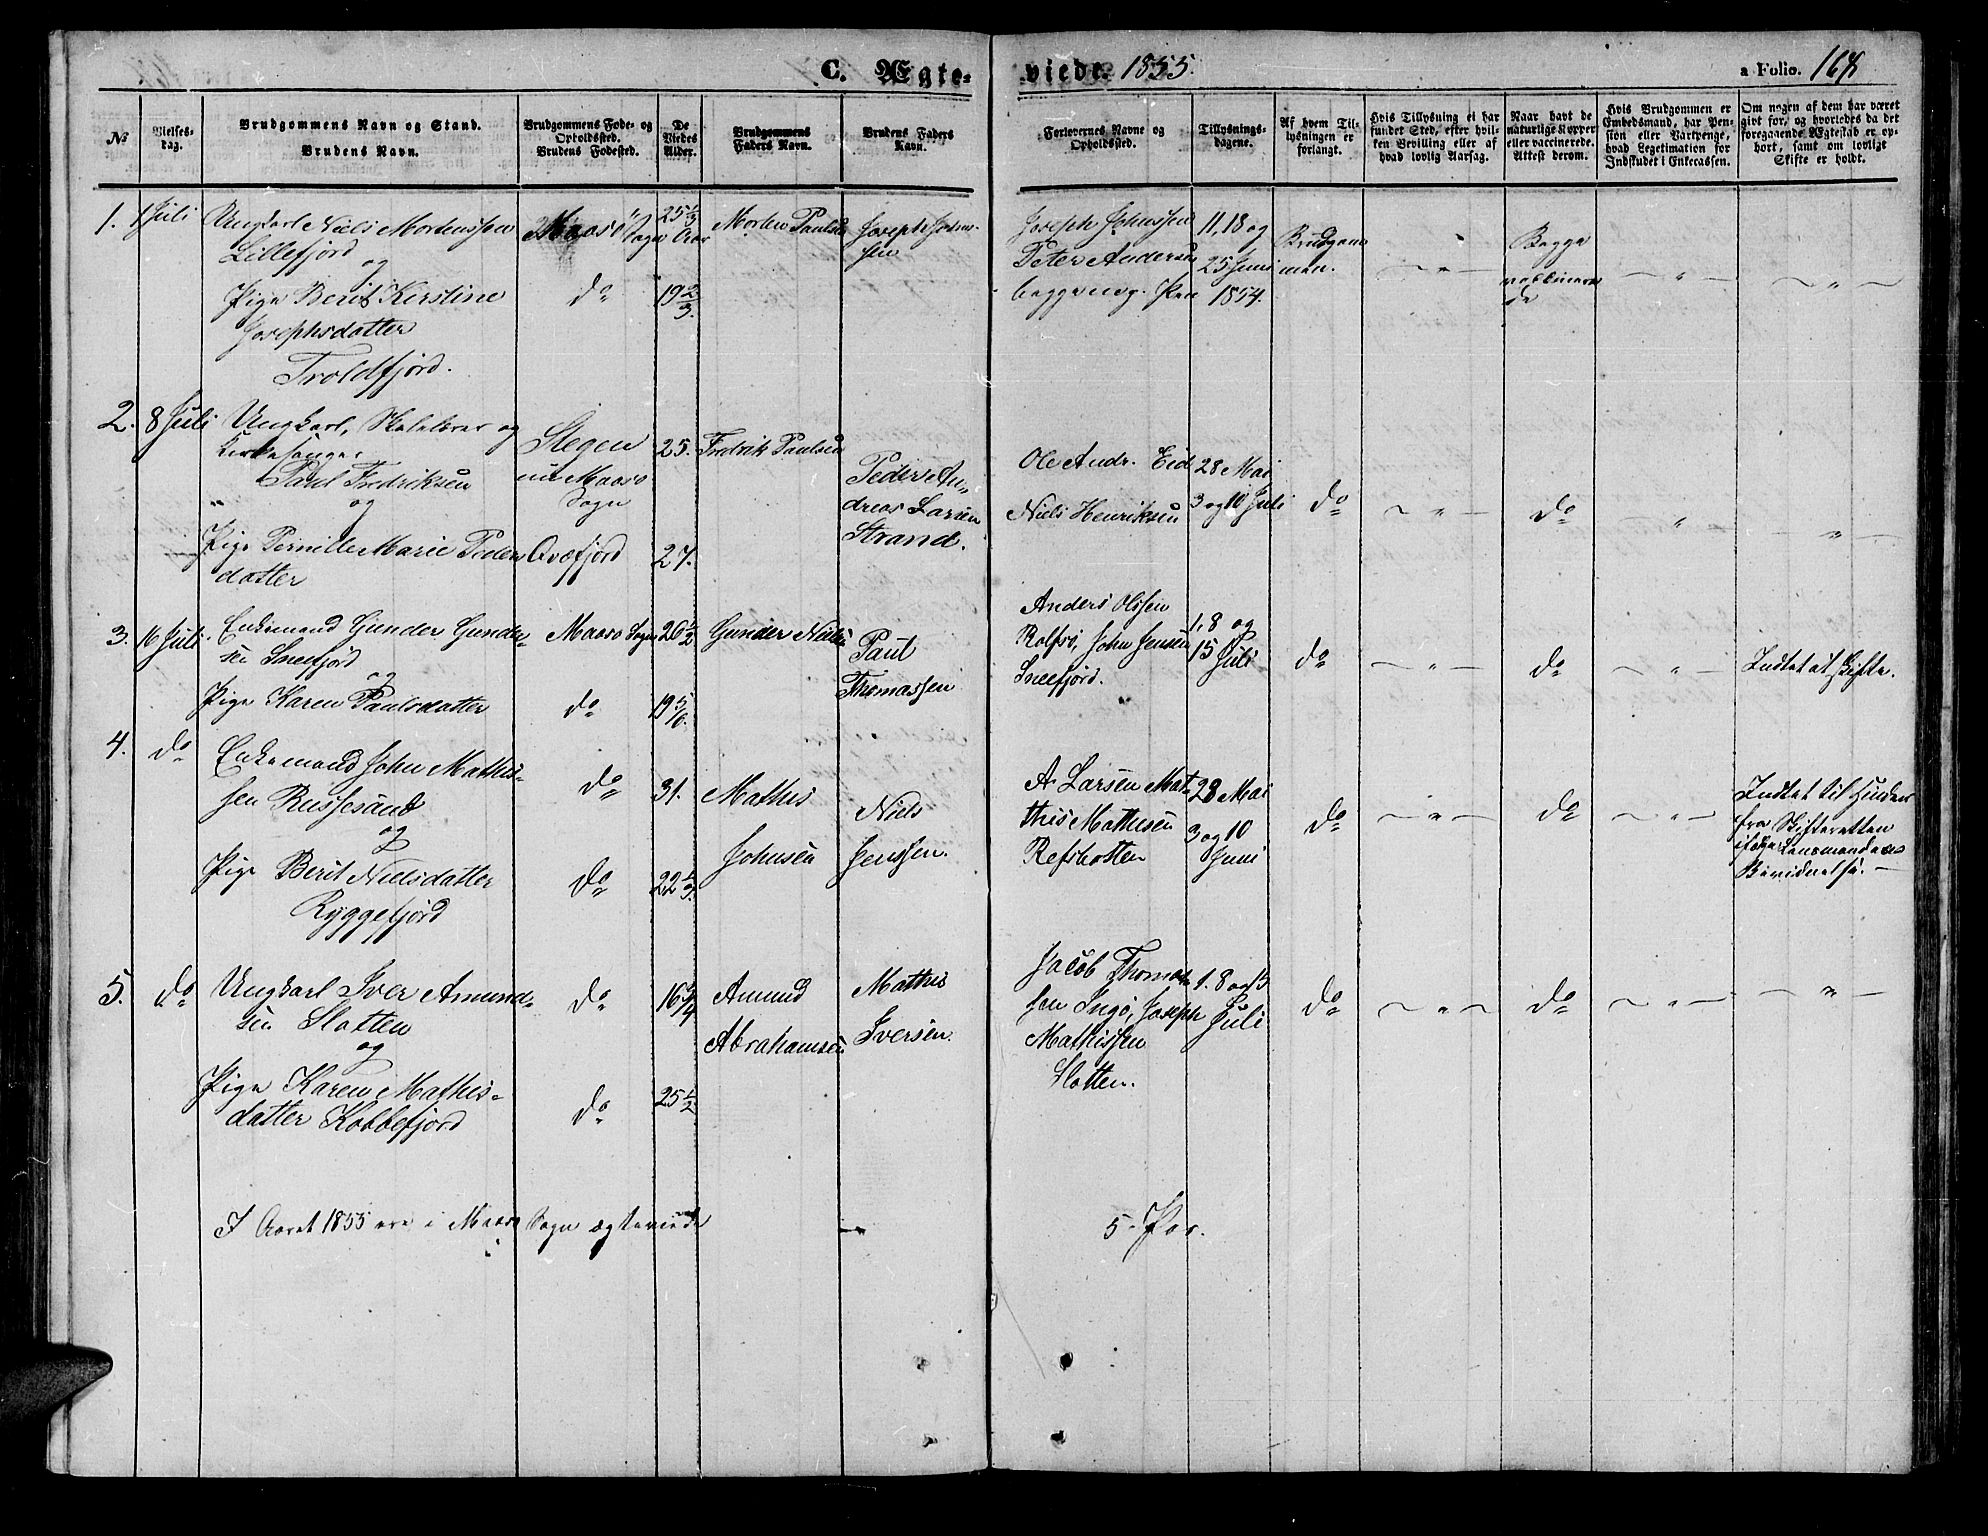 C. Ægte-
viede. 1855.
a Folio. 168
No
Vielses-
dag.
Brudgommens Navn og Stand.
Brudens Navn.
Brudgommens Føde- og
Opholdssted.
Brudens Fødested.
De
Viedes
Alder.
Brudgommens
Faders Navn.
Brudens Faders
Navn.
Forlovernes Navne og
Opholdssted.
Tillysnings-
dagene.
Af hvem Til-
lysningen er
forlangt.
Hvis Tillysning ei har
fundet Sted, efter hvil-
ken Bevilling eller af
hvad lovlig Aarsag.
Naar havt de
naturlige Kopper
eller vaccinerede.
Attest derom.
Hvis Brudgommen er
Embedsmand, har Pen-
sion eller Vartpenge,
hvad Legetimation for
Indskudet i Enkecassen.
Om nogen af dem har været
givt for, og hvorledes da det
foregaaende Ægteskab er op-
hørt, samt om lovligt
Skifte er holdt.
1. 1 Juli
Ungkarl Niels Mortenssen
Lillefjord
og
Pige Berit Kirstine
Josephsdatter
Troldfjord.
Maasø Sogn
do
25 1/3
Aar
19 2/3.
Morten Paulsen
Joseph Johns-
sen
Joseph Johnssen
Peter Andersen
begge
11, 18 og
25 Juni
1854.
Brudgom-
men.
Begge
vaccinere-
de
2. 8 Juli
Ungkarl, Skolelærer og
Kirkesanger
Paul Fredriksen
og
Pige Pernille Marie Peders
datter
Stegen
nu Maasø
Sogn
Qvæfjord
25.
27.
Fredrik Paulsen
Peder An-
dreas Larsen
Strand.
Ole Andr. Eid
Niels Henriksen
28 Mai
3 og 10 Juli
do
do
3. 16 Juli.
Enkemand Gunder Gunder-
sen Sneefjord
og
Pige Karen Paulsdatter
Maasø Sogn
do
26 1/2
19 5/6.
Gunder Nielsen
Paul
Thomassen
Anders Olssen
Rolfsø, John Jensen
Sneefjord.
1, 8 og
15 Juli
do
do
Intet at skifte.
4. do
Enkemand John Mathis-
sen Russesund
og
Pige Berit Nielsdatter
Ryggefjord
do
do
31.
22 1/3.
Mathis
Johnsen
Niels
Jenssen.
A Larsen Mat-
this Mathisen
Refsbotten
28 Mai
3 og 10
Juni
do
do
Intet til Hinder
fra Skifteretten
ifølge Lensmandens
Bevidnelse.
5. do
Ungkarl Iver Amund-
sen Slotten
og
Pige Karen Mathis-
datter Kobbefjord
do
do
16 3/4
25 1/2
Amund
Abrahamsen
Mathis
Iversen.
Jacob Thomas-
sen Ingø, Joseph
Mathissen
Slotten.
1. 8 og 15
Juli
do
do
I Aaret 1855 ere i Maasø Sogn ægteviede
5 Par.